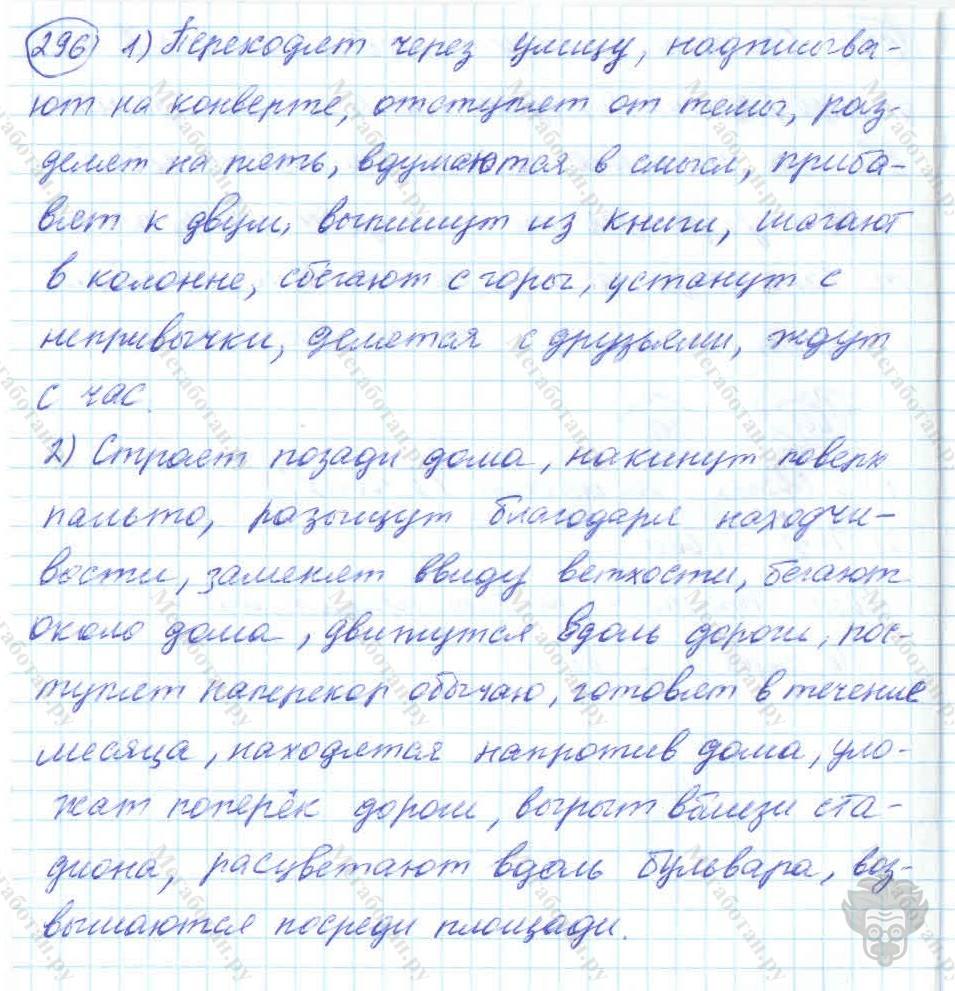 296 1) Переходят через улицу, надписыва-
ют на конверте, отступят от темы, раз-
делят на пять, вдумаются в смысл, приба-
вят к двум, выпишут из книги, шагают
в колонне, сбегают с горы, устанут с
непривычки, делятся с друзьями, ждут
с час.
2) Строят позади дома, накинут поверх
пальто, разыщут благодаря находчи-
вости, заменят ввиду ветхости, бегают
около дома, движутся вдоль дороги, пос-
тупят наперекор обычаю, готовят в течение
месяца, находятся напротив дома, уло-
жат поперёк дороги, вырыт вблизи ста-
диона, расцветают вдоль бульвара, воз-
вышаются посреди площади.
Мегаботан.ру